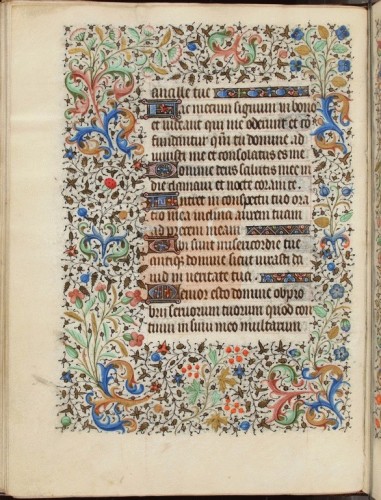 ancille tue
Fac mecum signum in bono
et videant qui me oderunt et co
fundantur qm̄ tu domine ad
iuuisti me et consolatus es me
Domine deus salutis mee in
die clamaui et nocte coram te.
Intret in conspectu tuo ora
tio mea inclina aurem tuam
ad precem meam
Ubi sunt misericordie tue
antiq̄ domine sicut iurasti da
uid in ueritate tua
Memor esto domine obpro
brii seruorum tuorum quod con
tinui in sinu meo multarum